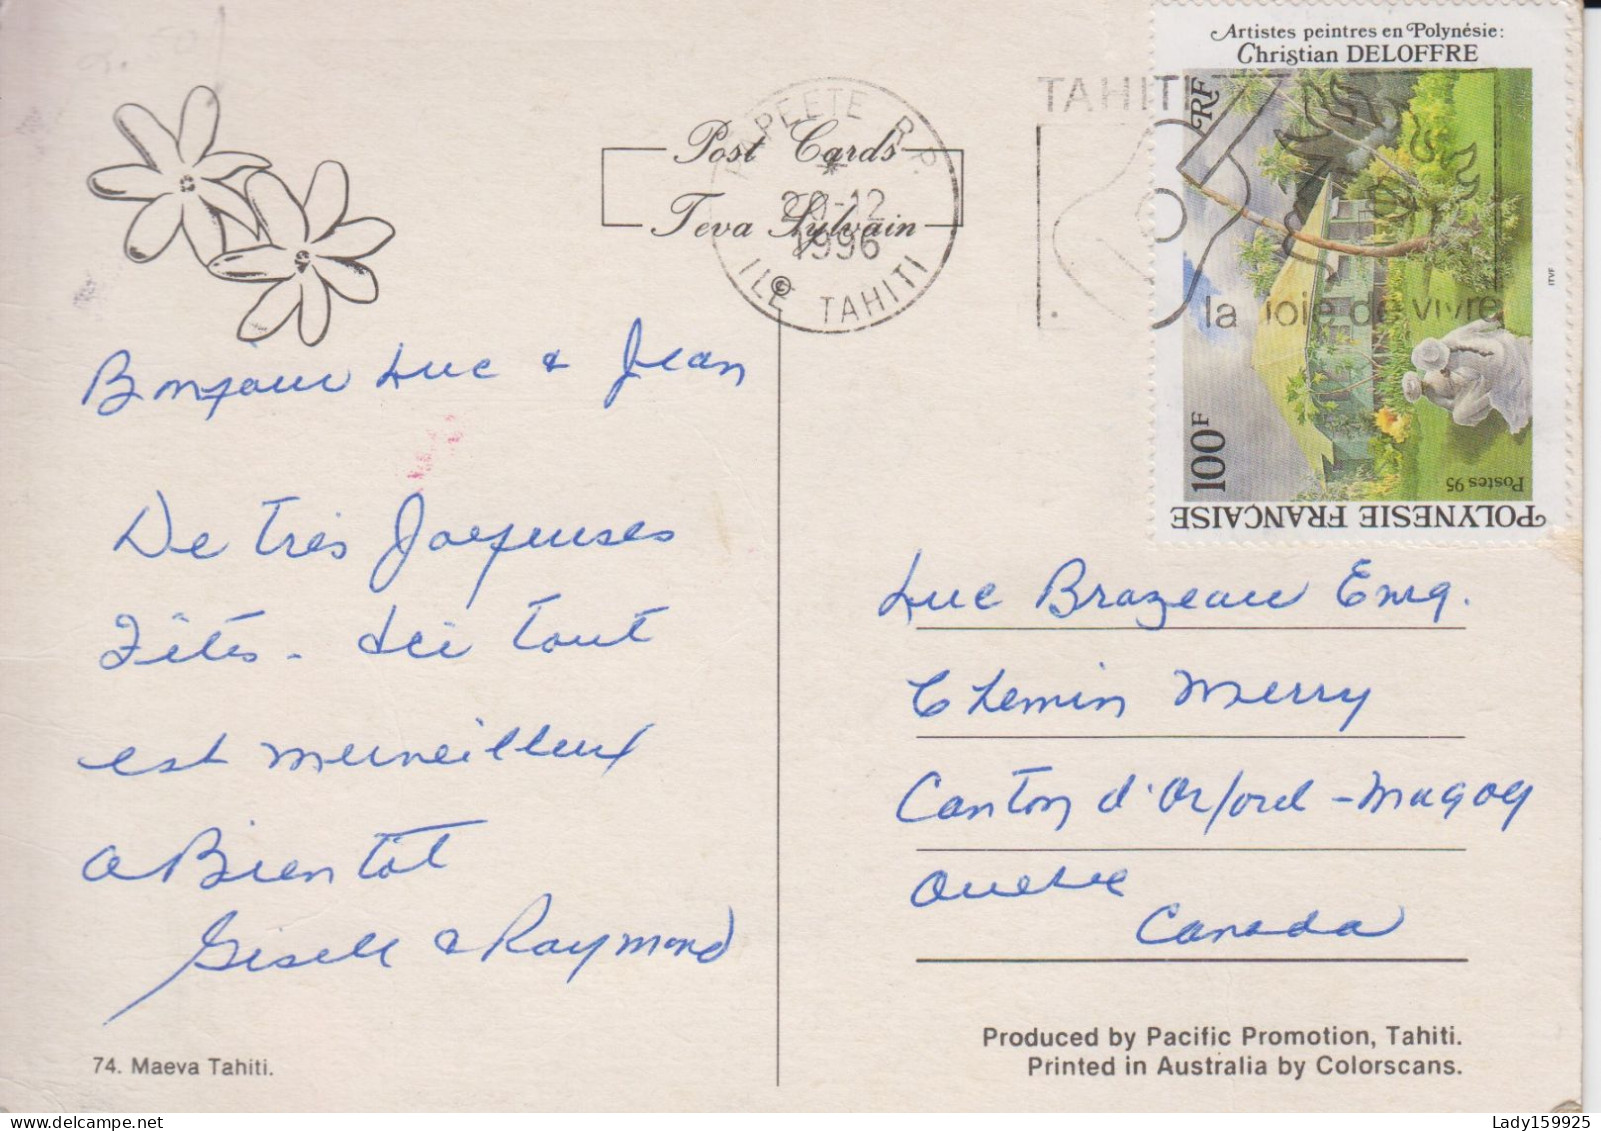 Artistes peintres en Polynésie:
Christian DELOFFRE
RF
100F
Postes 95
POLYNESIE FRANÇAISE
ITVF
PAPEETE R.P.
20-12
1996
ILE TAHITI
TAHITI
la joie de vivre
Post Cards
Teva Sylvain
©
Bonjour Luc & Jean
De Très Joyeuses
Fêtes - Ici Tout
est merveilleux
a Bientôt
Gisell & Raymond
Luc Brazeau Enrg.
Chemin Merry
Canton d'Orford - Magog
Quebec
Canada
74. Maeva Tahiti.
Produced by Pacific Promotion, Tahiti.
Printed in Australia by Colorscans.
delcampe.net
Lady159925